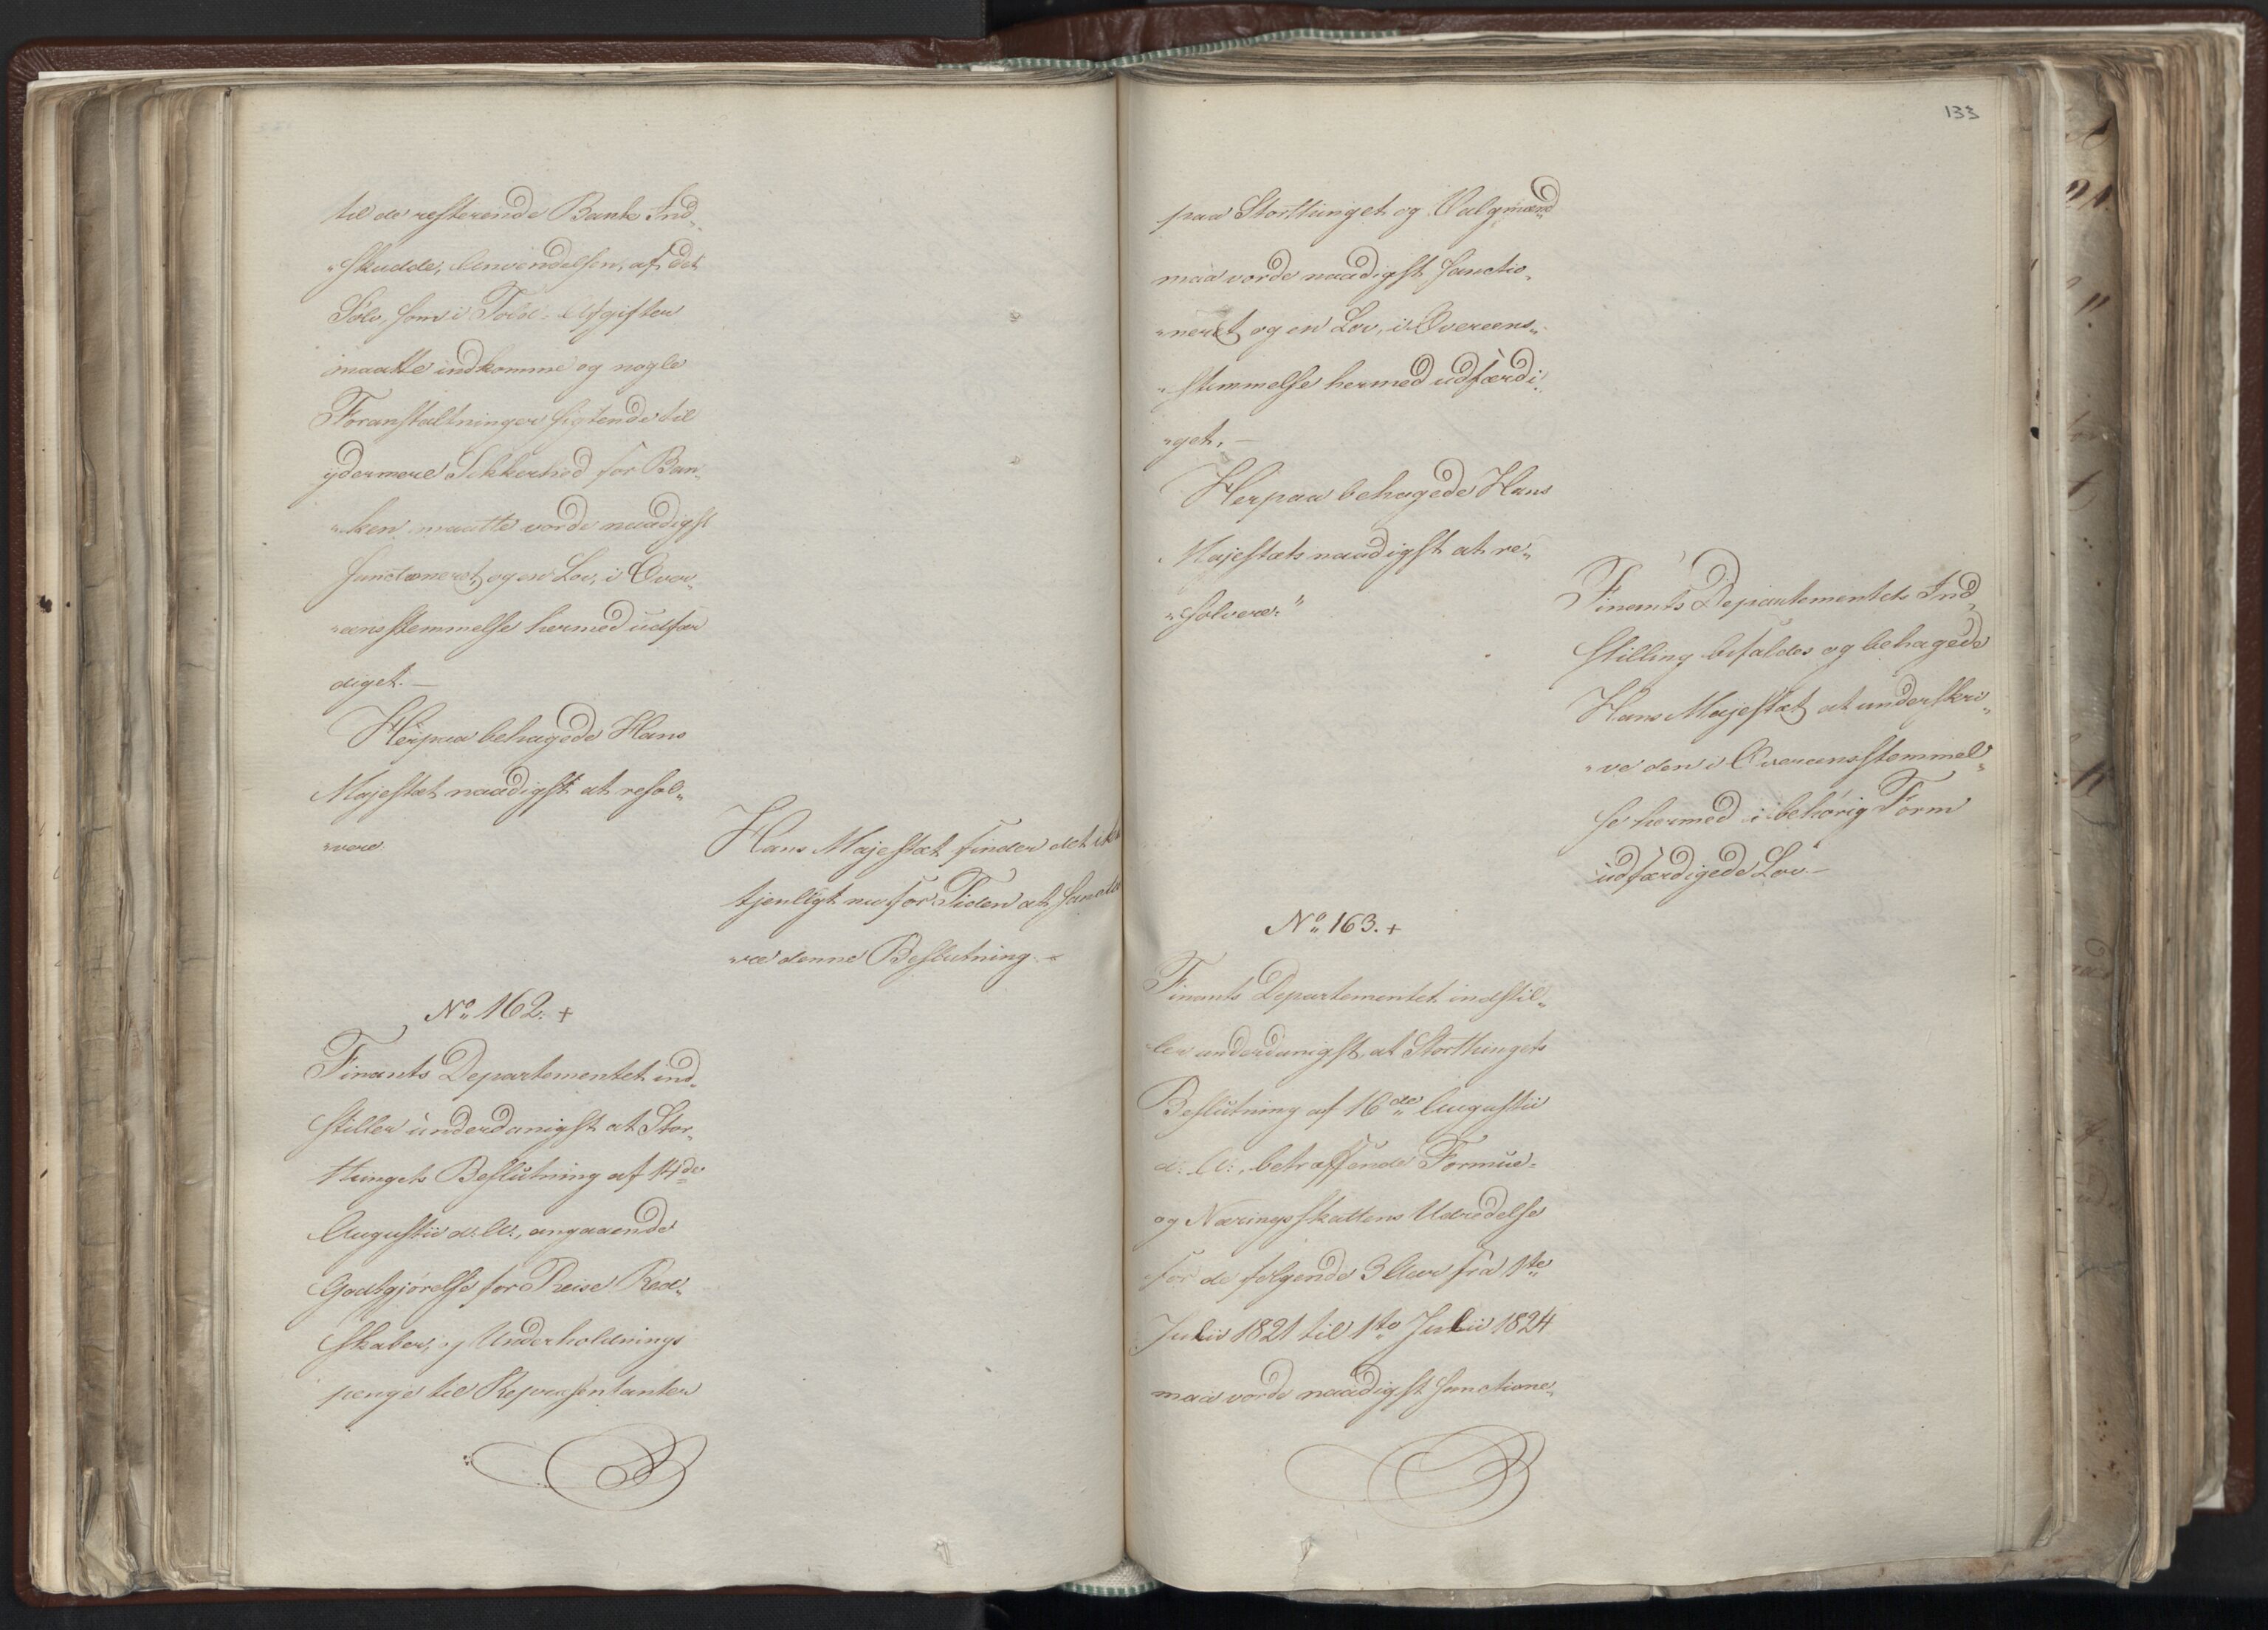 til de resterende Bank Ind„
„skudde, Anvendelsen, af det
Sølv, som i Told-Afgifter
maatte indkomme og nogle
Foranstaltninger sigtende til
ydermere Sikkerhed for Ban„
„ken maatte vorde naadigst
sanctioneret, og en Lov, i Over„
„eensstemmelse hermed udfær
diget. —
Herpaa behagede Hans
Majestæt naadigst at resol„
„vere:
Hans Majestæt finder det ikke
tjenligt nu for Tiden at sanctio
„re denne Beslutning. —
No 162. +
Finants Departementet ind„
stiller underdanigst at Stor„
thingets Beslutning af 14de
Augustii d. A., angaaende
Godtgjørelse for Reise Red„
skaber, og Underholdnings
penge til Repræsentanter
133
paa Storthinget og Valgmænd
maa vorde naadigst sanctio„
„neret og en Lov, i Overeens„
„stemmelse hermed udfærdi„
„get. —
Herpaa behagede Hans
Majestæt naadigst at re„
„solvere: "
Finants Departementets Ind„
stilling bifaldes og behagede
Hans Majestæt at underskri„
„ve den i Overeensstemmel„
se hermed i behørig Form
udfærdigede Lov. —
No 163. +
Finants Departementet indstil„
ler underdanigst, at Storthingets
Beslutning af 16de Augustii
d. A., betræffende Formue-
og Næringsskattens Udredelse
for de følgende 3 Aar fra 1te
Julii 1821 til 1te Julii 1824
maa vorde naadigst sanctione„